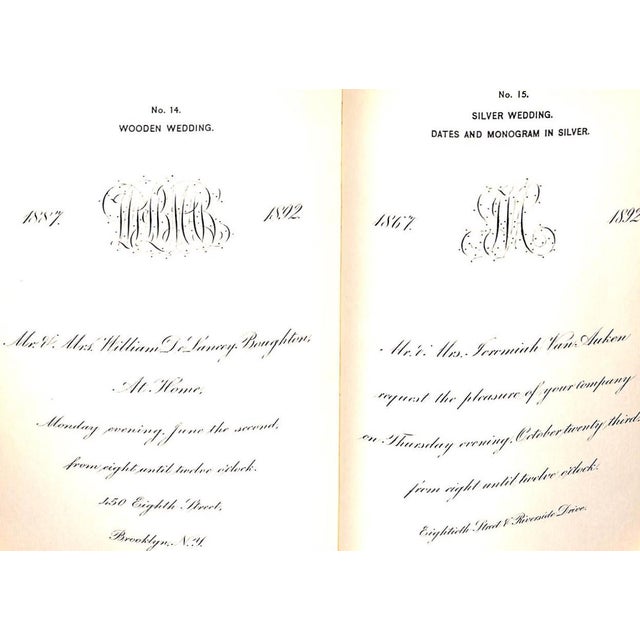 No. 14.
WOODEN WEDDING.
1887. 1892.
Mr. & Mrs. William De Lancey Boughton,
At Home,
Monday evening, June the second,
from eight until twelve o'clock.
450 Eighth Street,
Brooklyn, N.Y.
No. 15.
SILVER WEDDING.
DATES AND MONOGRAM IN SILVER.
1867. 1892
Mr. & Mrs. Jeremiah Van Auken
request the pleasure of your company
on Thursday evening, October twenty third,
from eight until twelve o'clock.
Eightieth Street & Riverside Drive.